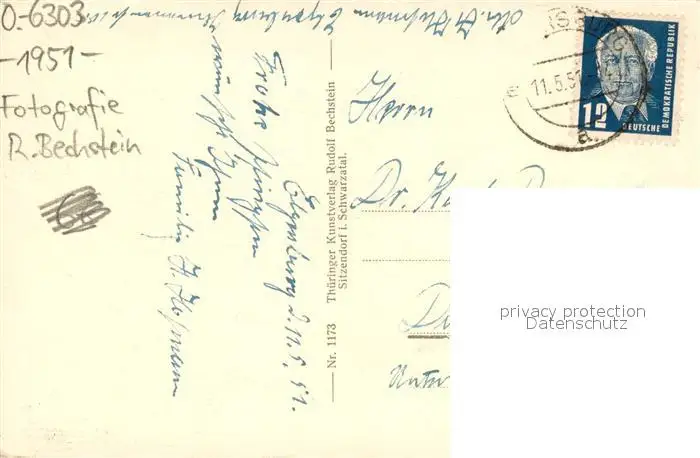 O-6303
-1951-
Fotografie
R. Bechstein
60
Elgersburg d. 11.5.51.
Frohe Pfingsten
wünscht Ihnen
Familie H. Hofmann
Nr. 1173 Thüringer Kunstverlag Rudolf Bechstein
Sitzendorf i. Schwarzatal.
11.5.51
a
12
DEUTSCHE
DEMOKRATISCHE REPUBLIK
Herrn
Dr.
privacy protection
Datenschutz